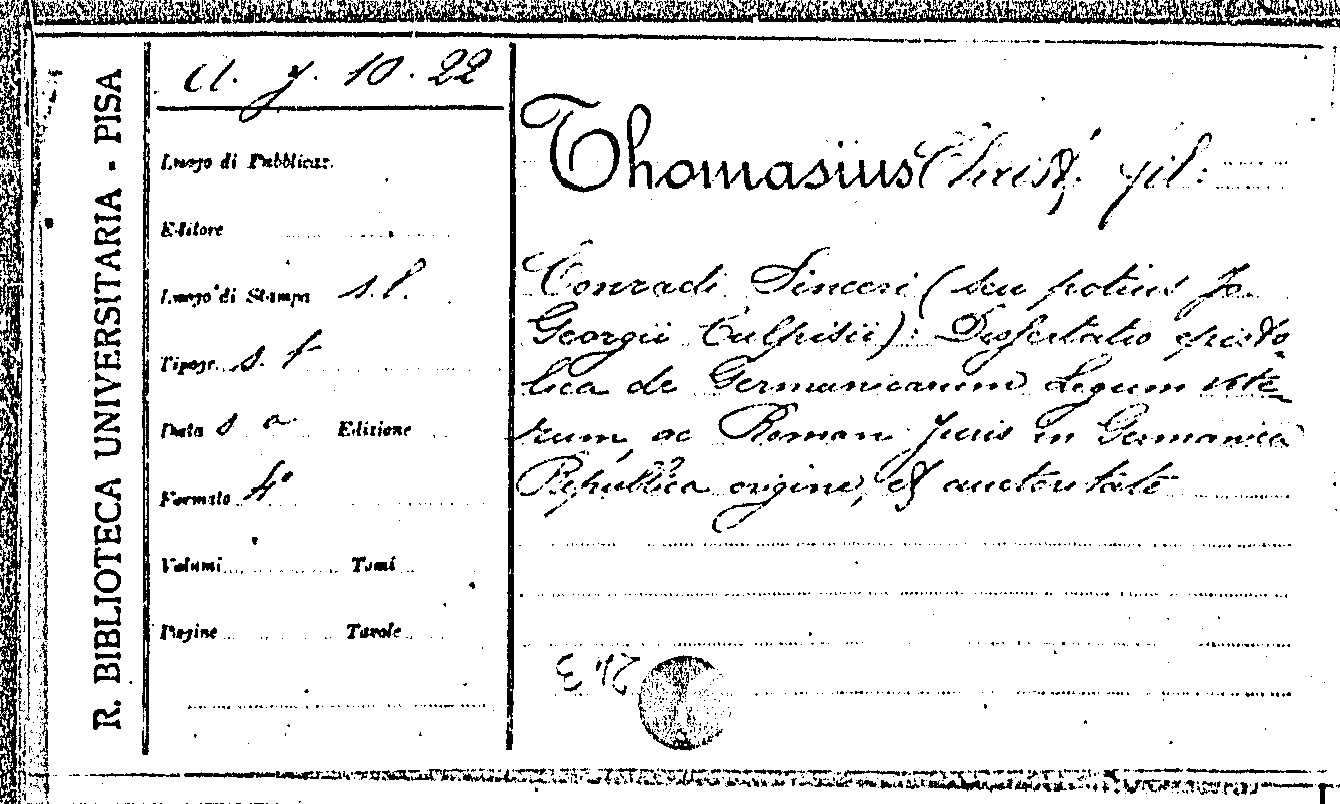 R. BIBLIOTECA UNIVERSITARIA - PISA
A. y. 10. 22
Luogo di Pubblicaz.
Editore
Luogo di Stampa s.l.
Tipogr. s. t
Data s a Edizione
Formato 4°
Volumi Tomi
Pagine Tavole
Thomasius Christ. fil:
Conradi Sinceri (seu potius Jo.
Georgii Culpisii): Dissertatio episto-
lica de Germanicarum Legum vete-
rum, ac Romani Juris in Germanica
Republica origine, et auctoritate